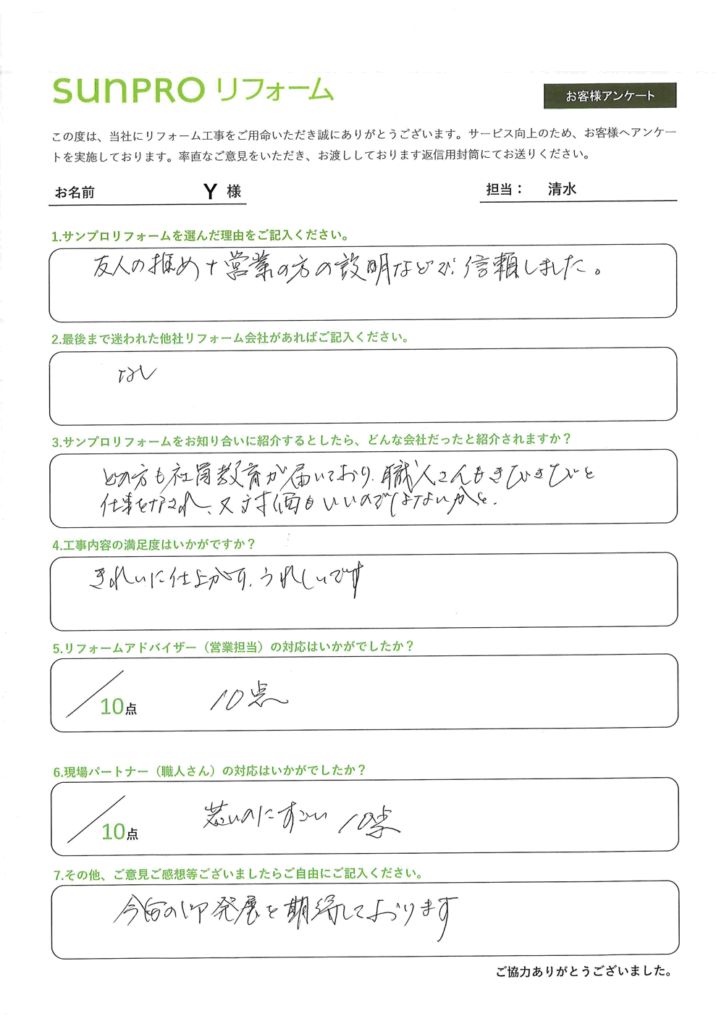 sunPRO リフォーム
お客様アンケート
この度は、当社にリフォーム工事をご用命いただき誠にありがとうございます。サービス向上のため、お客様へアンケー
トを実施しております。率直なご意見をいただき、お渡ししております返信用封筒にてお送りください。
お名前 Y 様 担当： 清水
1.サンプロリフォームを選んだ理由をご記入ください。
友人の推め+営業の方の説明などで、信頼しました。
2.最後まで迷われた他社リフォーム会社があればご記入ください。
なし
3.サンプロリフォームをお知り合いに紹介するとしたら、どんな会社だったと紹介されますか？
どの方も社員教育が届いており、職人さんもきびきびと
仕事をなされ、又対価もいいのではないかと.
4.工事内容の満足度はいかがですか？
きれいに仕上がり、うれしいです
5.リフォームアドバイザー（営業担当）の対応はいかがでしたか？
／10点 10点
6.現場パートナー（職人さん）の対応はいかがでしたか？
／10点 若いのにすごい 10点
7.その他、ご意見ご感想等ございましたらご自由にご記入ください。
今后の御発展を期待しております
ご協力ありがとうございました。